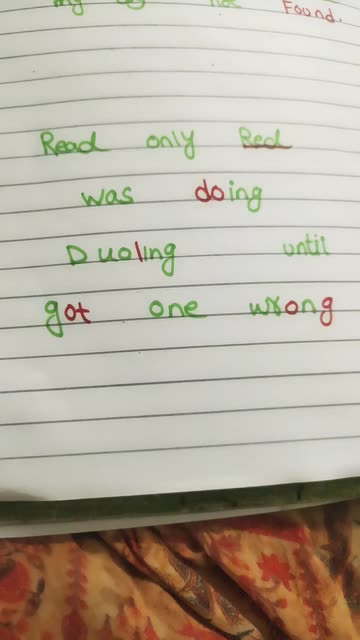 not Found.
Read only Red
was doing
Duoling until
got one wrong